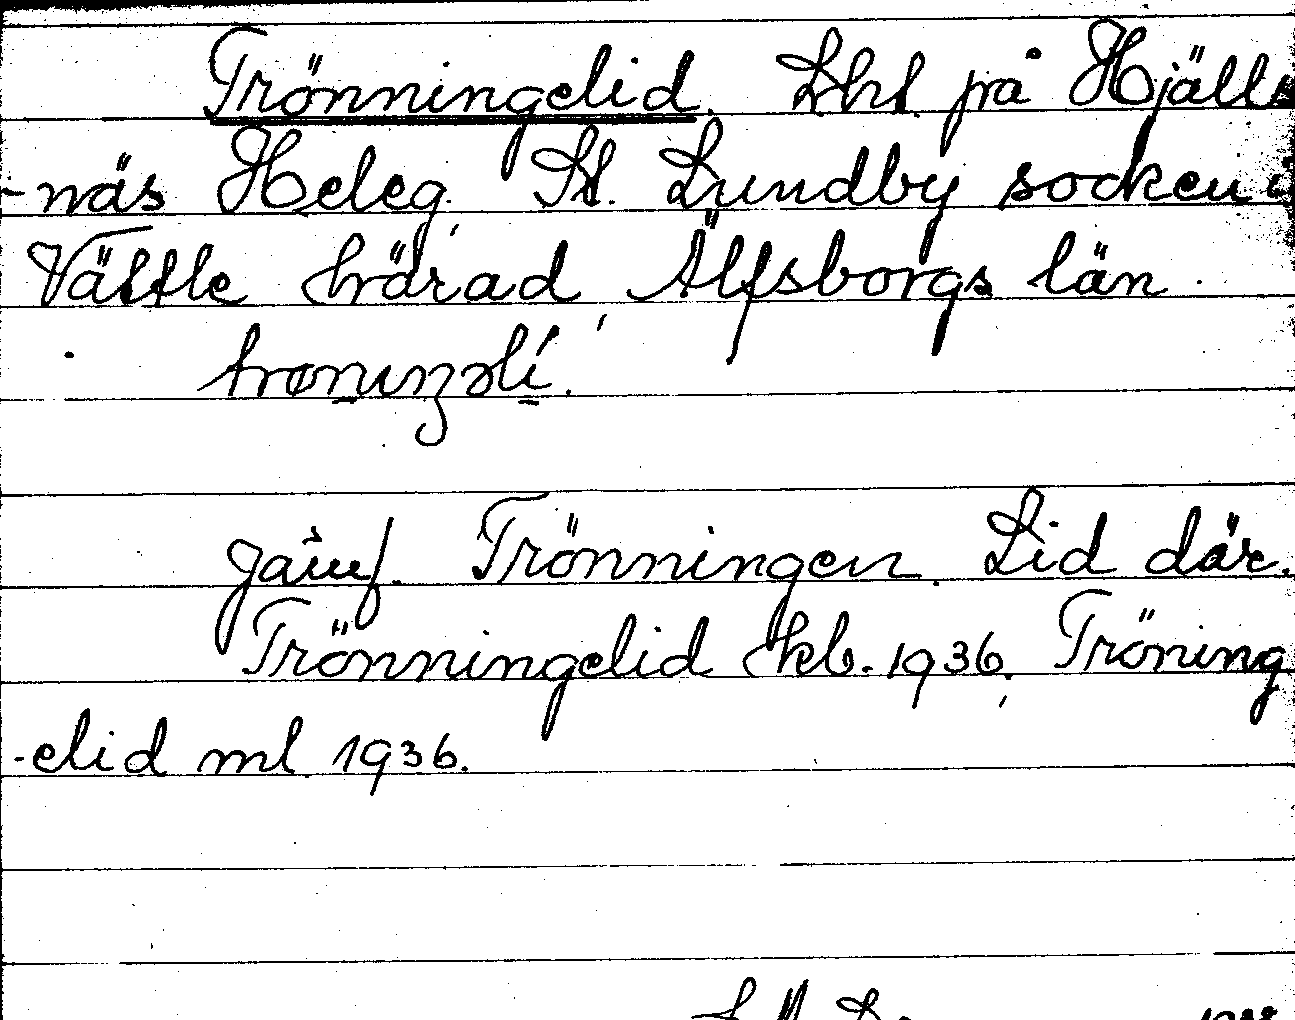 Trönningelid. Lht på Hjälls
-näs Heleg. St. Lundby socken i
Vättle härad, Älfsborgs län.
trønıŋəlí.
Jämf. Trönningen. Lid där.
Trönningelid kb. 1936, Tröning
-elid ml 1936.